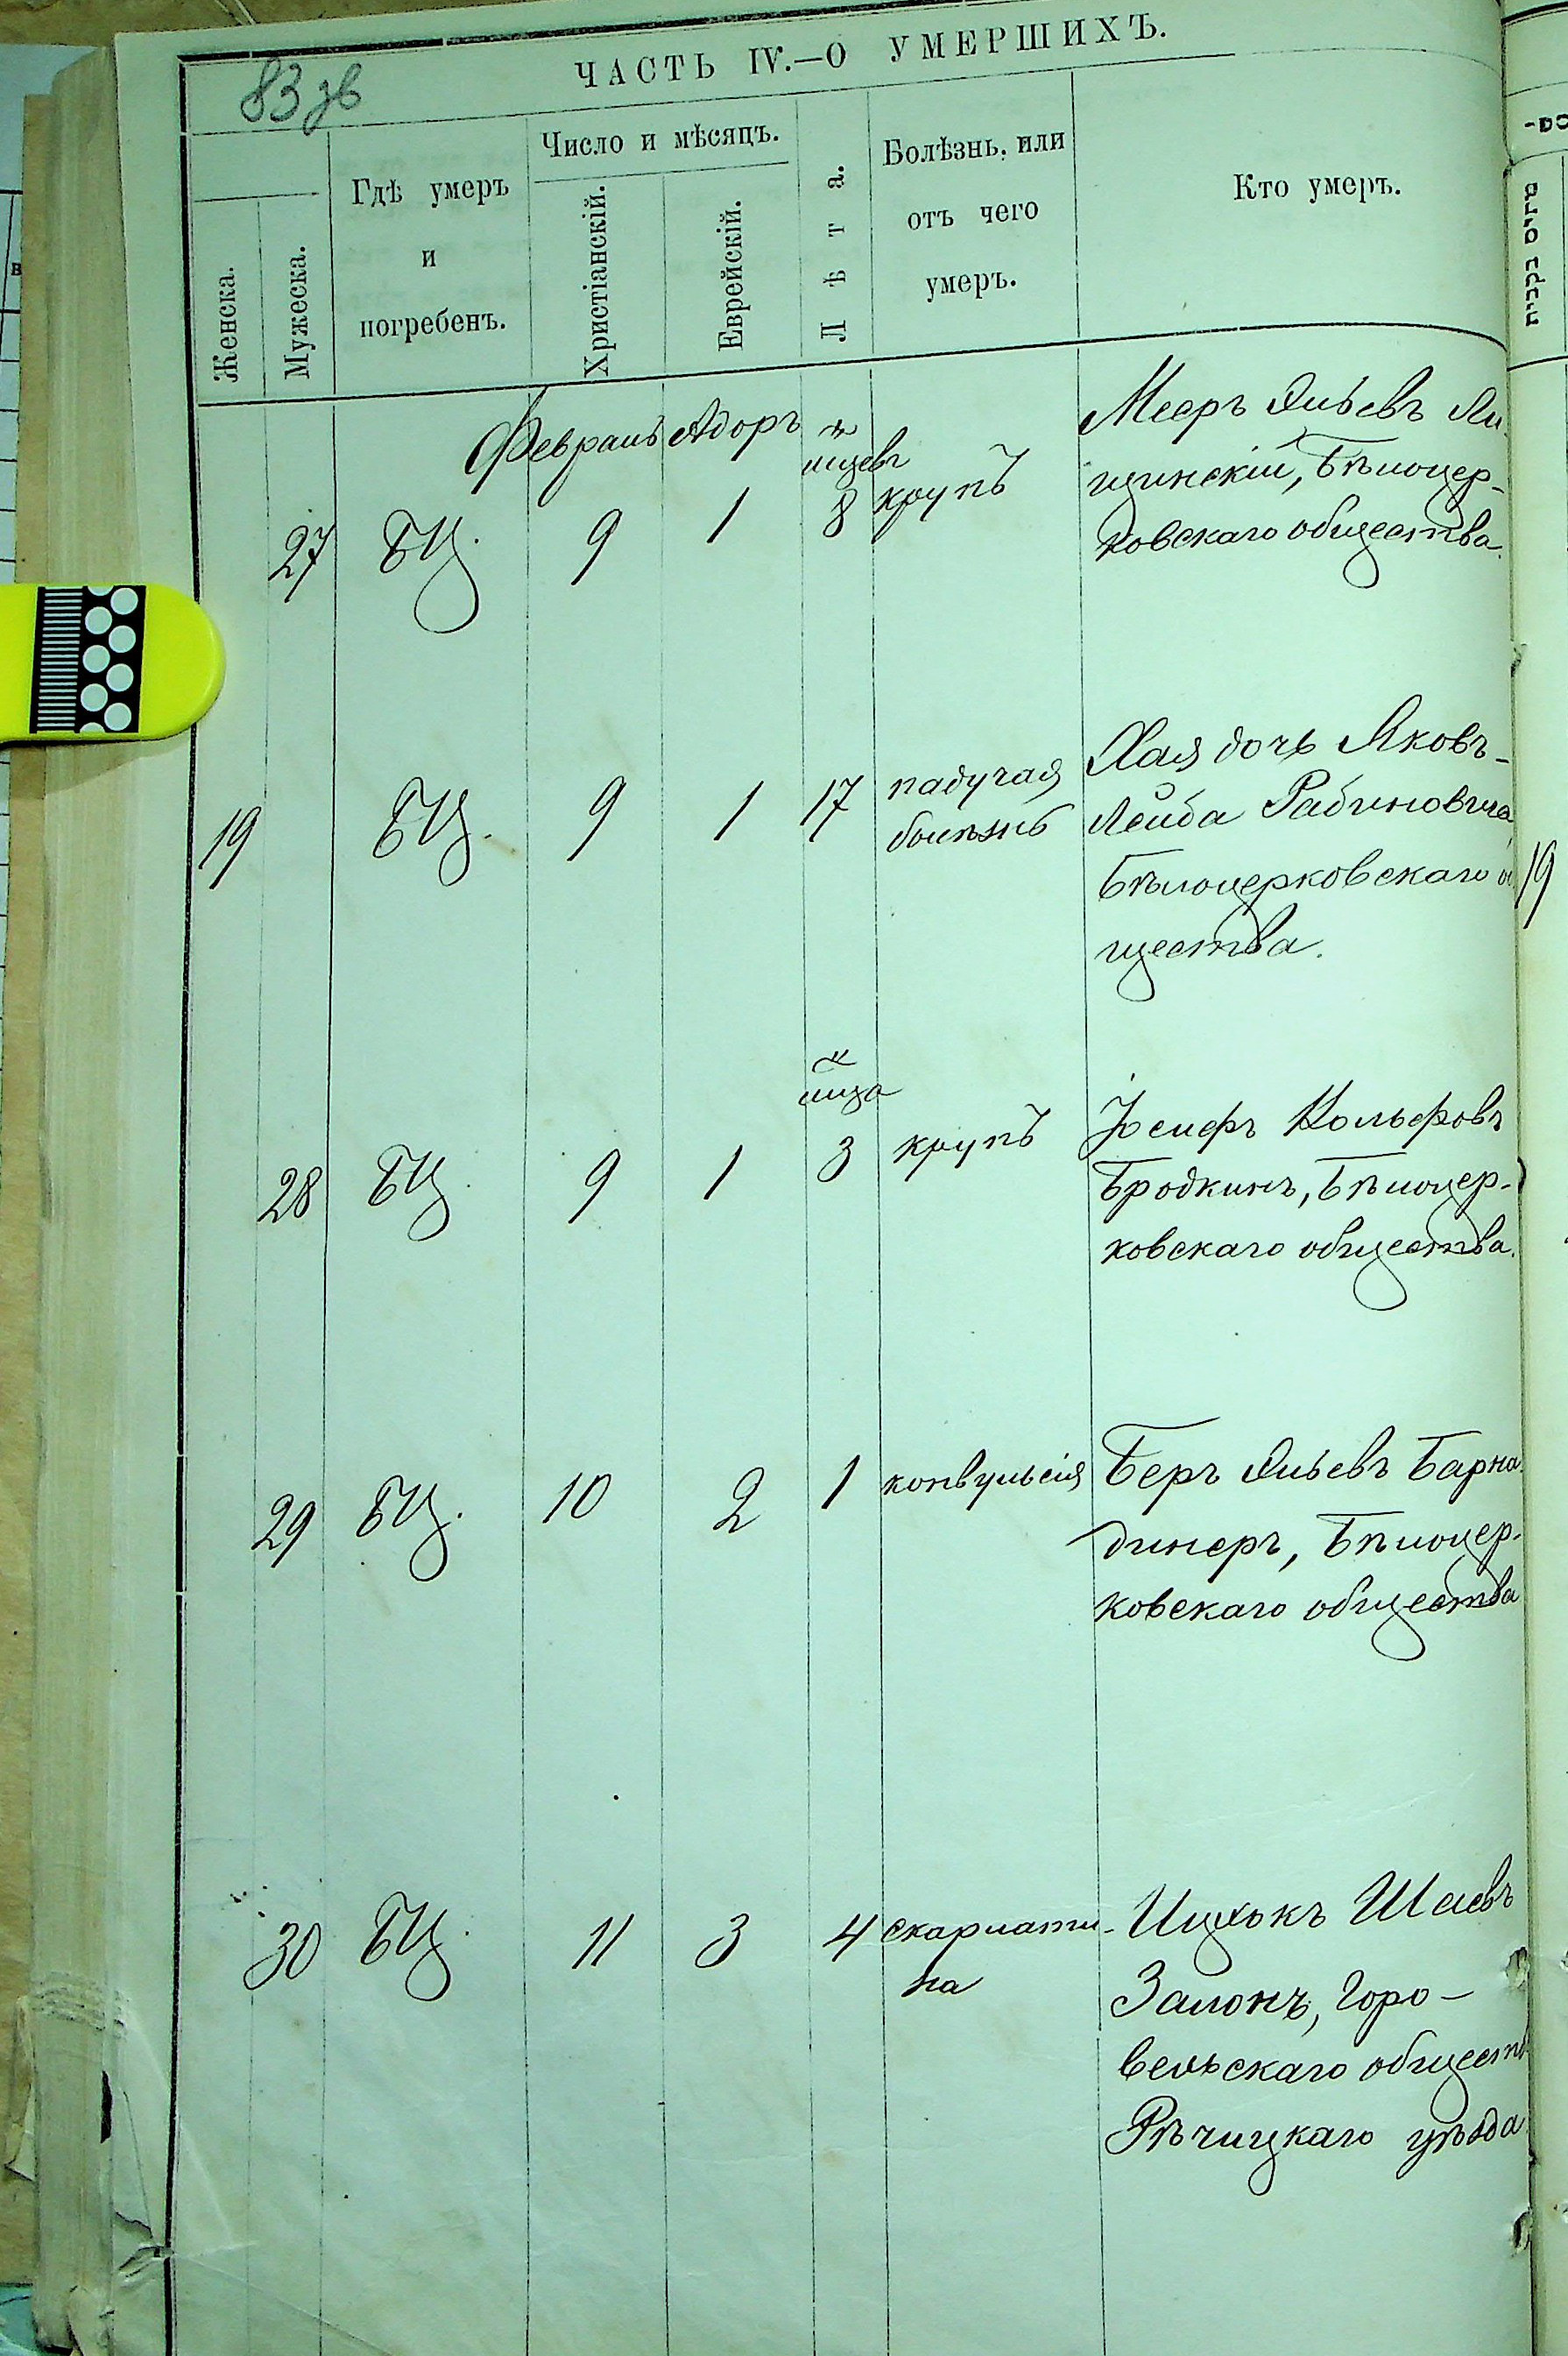 83 зв
ЧАСТЬ IV.—О УМЕРШИХЪ.
Женска.
Мужеска.
Гдѣ умеръ
и
погребенъ.
Число и мѣсяцъ.
Христіанскій.
Еврейскій.
Лѣта.
Болѣзнь, или
отъ чего
умеръ.
Кто умеръ.
טרים בקברית
Февраль Адоръ
27 БЦ. 9 1 м-цевъ 8 крупъ
Мееръ Эльевъ
щинскій, Бѣлоцер-
ковскаго общества.
19 БЦ. 9 1 17 падучая
болѣзнь
Хая дочь Яковъ-
Лейба Рабиновича
Бѣлоцерковскаго
щества.
19
28 БЦ. 9 1 м-ца 3 крупъ
Іосифъ Вольфовъ
Бродкинъ, Бѣлоцер-
ковскаго общества.
29 БЦ. 10 2 1 конвульсія
Беръ Эльевъ Барна-
динеръ, Бѣлоцер-
ковскаго общества
30 БЦ. 11 3 4 скарлати-
на
Ицхокъ Шаевъ
Залонъ, Горо-
вельскаго обществ
Рѣчицкаго уѣзда